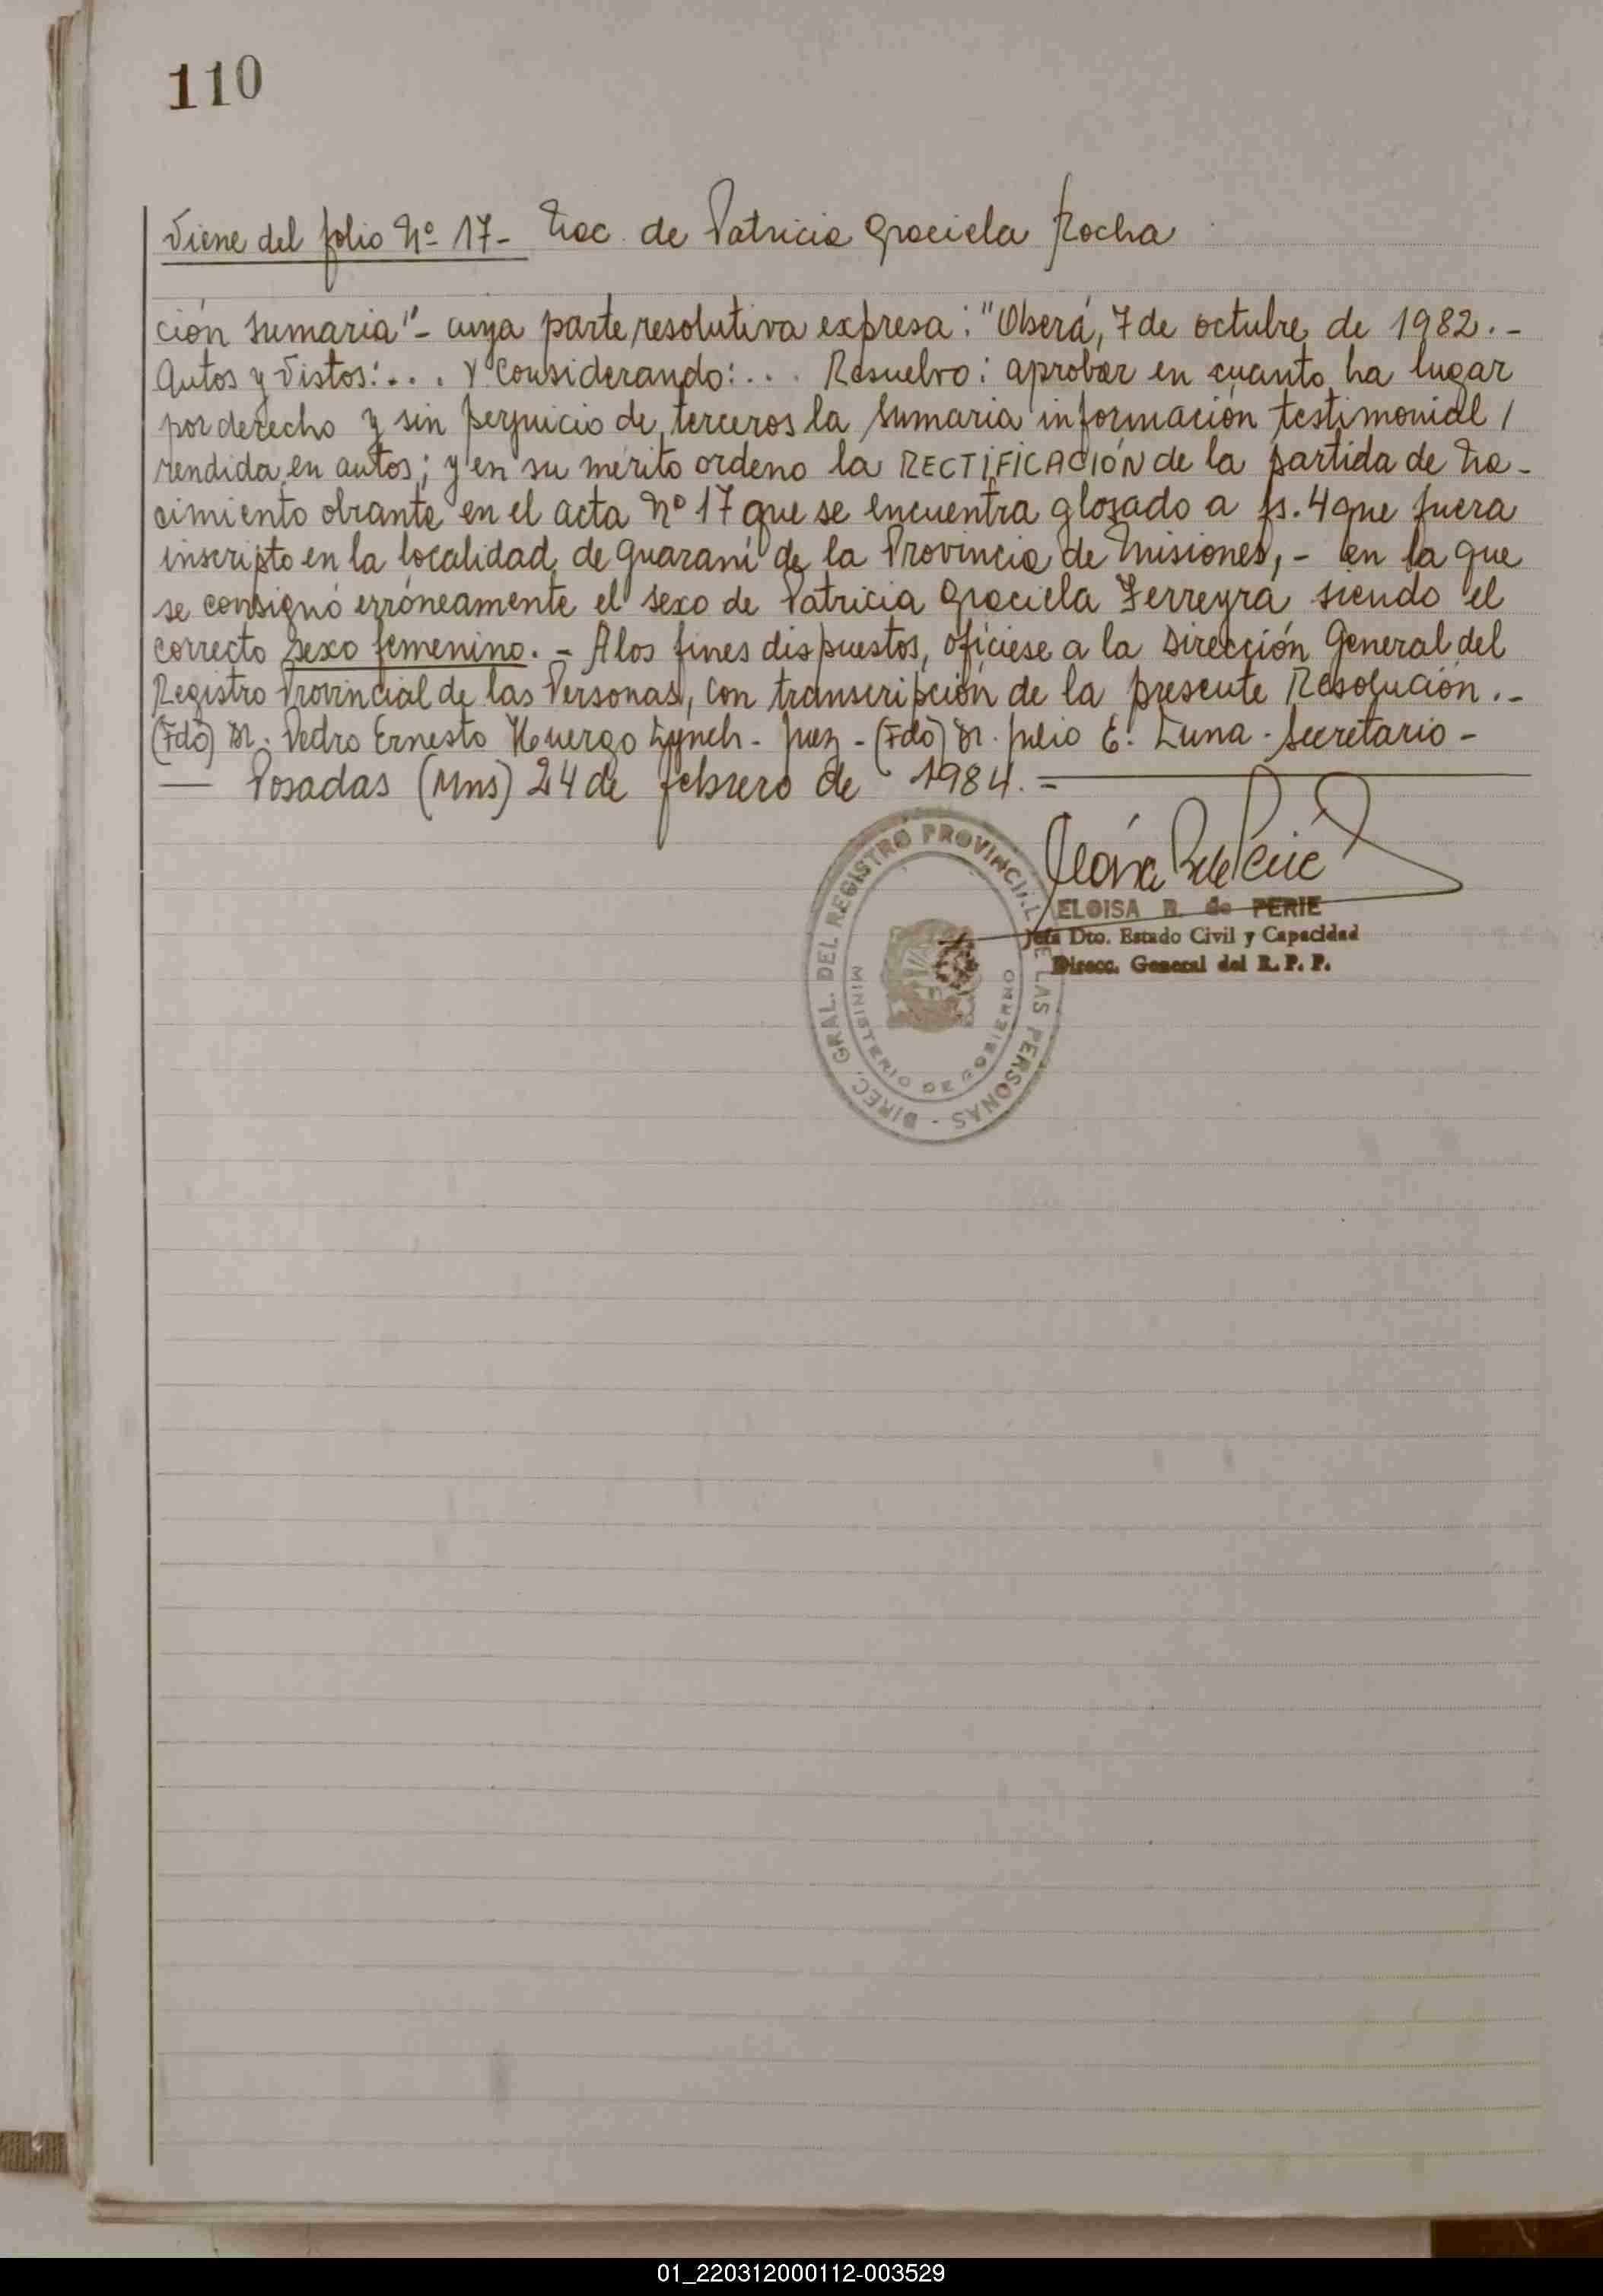 110
Viene del folio Nº 17- Nac. de Patricia Graciela Rocha
ción sumaria"- cuya parte resolutiva expresa: "Oberá, 7 de octubre de 1982.-
Autos y Vistos:... Y Considerando:... Resuelvo: aprobar en cuanto ha lugar
por derecho y sin perjuicio de terceros la sumaria información testimonial /
rendida en autos; y en su mérito ordeno la RECTIFICACIÓN de la partida de Na-
cimiento obrante en el acta Nº 17 que se encuentra glosado a fs. 4 que fuera
inscripto en la localidad de Guaraní de la Provincia de Misiones,- en la que
se consignó erróneamente el sexo de Patricia Graciela Ferreyra siendo el
correcto sexo femenino.- A los fines dispuestos, ofíciese a la Dirección General del
Registro Provincial de las Personas, con transcripción de la presente Resolución.-
(Fdo) Dr. Pedro Ernesto Huergo Lynch- Juez-(Fdo) Dr. Julio E. Luna- Secretario-
— Posadas (Mns) 24 de febrero de 1984.=
ELOISA R. de PERIE
Jefa Dto. Estado Civil y Capacidad
Direcc. General del R. P. P.
DIREC. GRAL. DEL REGISTRO PROVINCIAL DE LAS PERSONAS -
MINISTERIO DE GOBIERNO
01_220312000112-003529